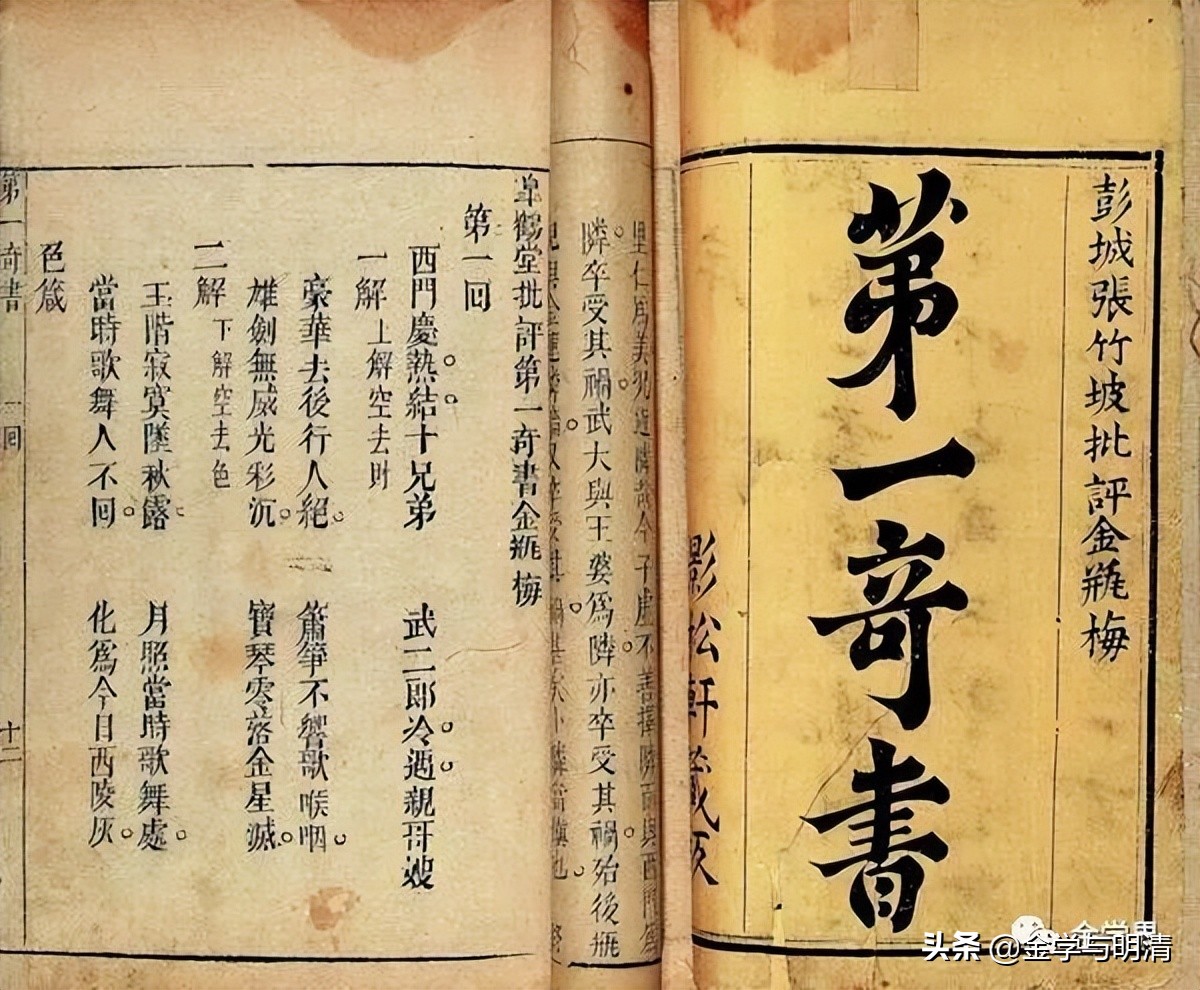 彭城張竹坡批評金瓶梅
第一奇書
影松軒藏板
隣卒受其禍武大與王婆為隣亦卒受其禍殆後瓶
皋鶴堂批評第一奇書金瓶梅
第一回
西門慶熱結十兄弟　武二郎冷遇親哥嫂
一解 上解空去財
豪華去後行人絕　簫箏不響歌喉咽
雄劍無威光彩沉　寶琴零落金星滅
二解 下解空去色
玉階寂寞墜秋露　月照當時歌舞處
當時歌舞人不回　化為今日西陵灰
色箴
第一奇書　一回　十二
金学界
头条 @金学与明清